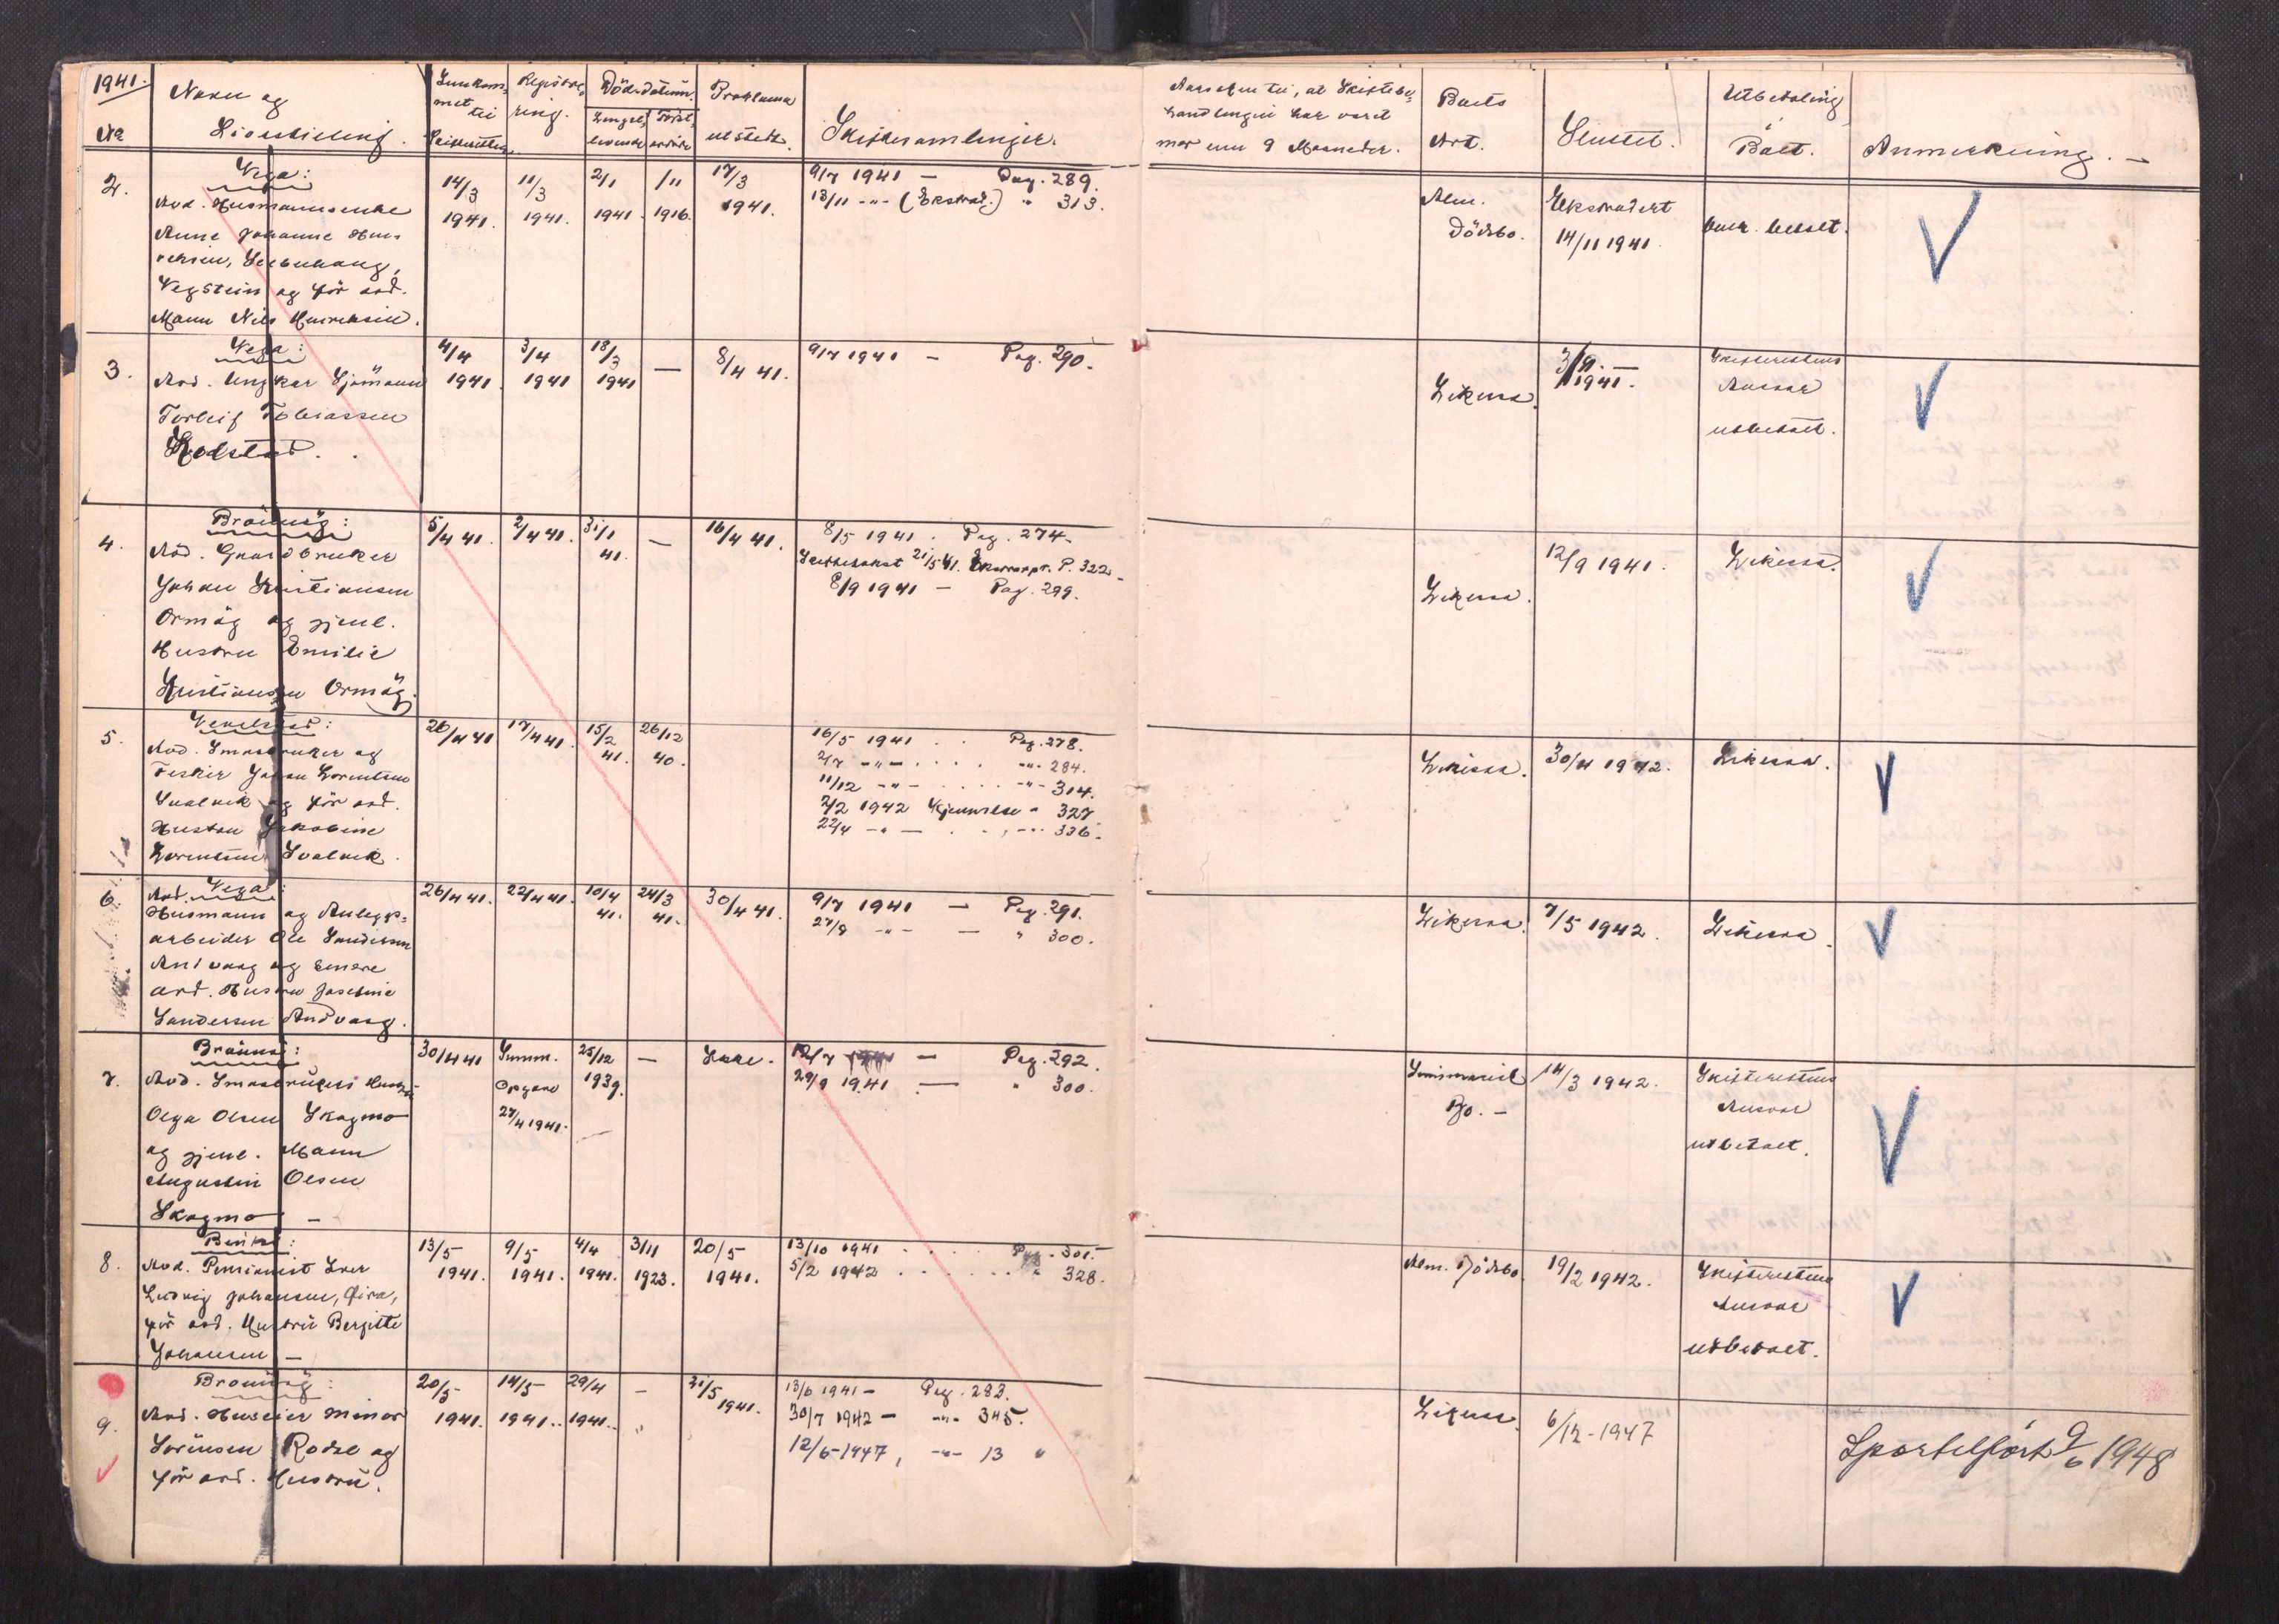 1941.
No
Navn og
Livsstilling.
Innkommet til
Skifteretten.
Registrering.
Dödsdatum.
Lengstlevende
Först avdöde
Proklama
utstedt.
Skiftesamlinger.
Aarsaken til, at Skiftebe-
handlingen har varet
mer enn 9 Maaneder.
Boets
Art.
Sluttet.
Utbetaling
i
Boet.
Anmerkning. —
2.
Vega:
Avd. Husmannsenke
Anne Johanne Hen
riksen,
Vegstein og för avd.
Mann Nils Henriksen.
14/3 1941.
11/3 1941.
2/1 1941.
/11 1916.
17/3 1941.
9/7 1941 — Pag. 289.
13/11 -"- (Ekstrad.) " 313.
Alm.
Dödsbo.
Ekstradert
14/11 1941.
3.
Vega:
Avd. Ungkar Sjömann
Torleif Tobiassen
Rolstad.
4/4 1941.
3/4 1941
18/3 1941
—
8/4 41.
9/7 1941 — Pag. 290.
Likvid.
1941.
Skifterettens
Ansvar
utbetalt.
4.
Brönnöy:
Avd. Gaardbruker
Johan Kristiansen
Ormöy og gjenl.
Hustru Emilie
Kristiansen Ormöy.
5/4 41.
2/4 41.
31/1 41.
—
16/4 41.
8/5 1941. Pag. 274.
21/5 41. P. 322.
8/9 1941 — Pag. 299.
Likvid.
12/9 1941.
Likvid.
5.
Avd. Smaabruker og
Fisker Johan Lorentsen
Svalvik og för avd.
Hustru Jakobine
Lorentsen Svalvik.
26/4 41
17/4 41.
15/2 41.
26/12 40.
16/5 1941 . . Pag. 278.
2/7 -"- . . . . -"- 284.
11/12 -"- . . . . -"- 314.
2/2 1942 Kjennelse " 327
22/4 -"- — . . , -"- 336.
Likvid.
30/4 1942.
Likvid.
6.
Vega:
Avd.
Husmann og Anleggs-
arbeider Ole Sandersen
Andvaag og senere
avd. Hustru Josefine
Sandersen Andvaag.
26/4 41.
22/4 41.
10/4 41.
24/3 41.
30/4 41.
9/7 1941 — Pag. 291.
27/9 -"- — " 300.
Likvid.
7/5 1942.
Likvid.
7.
Brönnöy:
Avd. Smaabrukers Hustru
Olga Olsen Skogmo
og gjenl. Mann
Augustin Olsen
Skogmo —
30/4 41
Summ.
Opgave
27/4 1941.
25/12 1939.
—
12/7 — Pag. 292.
29/9 1941 — " 300.
Bo. —
14/3 1942.
Skifterettens
Ansvar
utbetalt.
8.
Bindal:
Avd. Pensionist Iver
Ludvig Johansen,
för avd. Hustru Bergitte
Johansen —
13/5 1941.
9/5 1941.
4/4 1941.
3/11 1923.
20/5 1941.
13/10 1941 . . . . Pag. 301.
5/2 1942 . . . . . . " 328.
Alm. Dödsbo.
19/2 1942.
Skifterettens
Ansvar
utbetalt.
9.
Brönnöy:
Avd. Huseier Minor
Sörensen Rodal og
för avd. Hustru.
20/5 1941.
14/5 1941.
29/4 1941.
—
31/5 1941.
13/6 1941 — Pag. 283.
30/7 1942 — -"- 345.
12/6-1947, -"- 13 "
Likvid.
6/12-1947
Sportelfört 9/6 1948